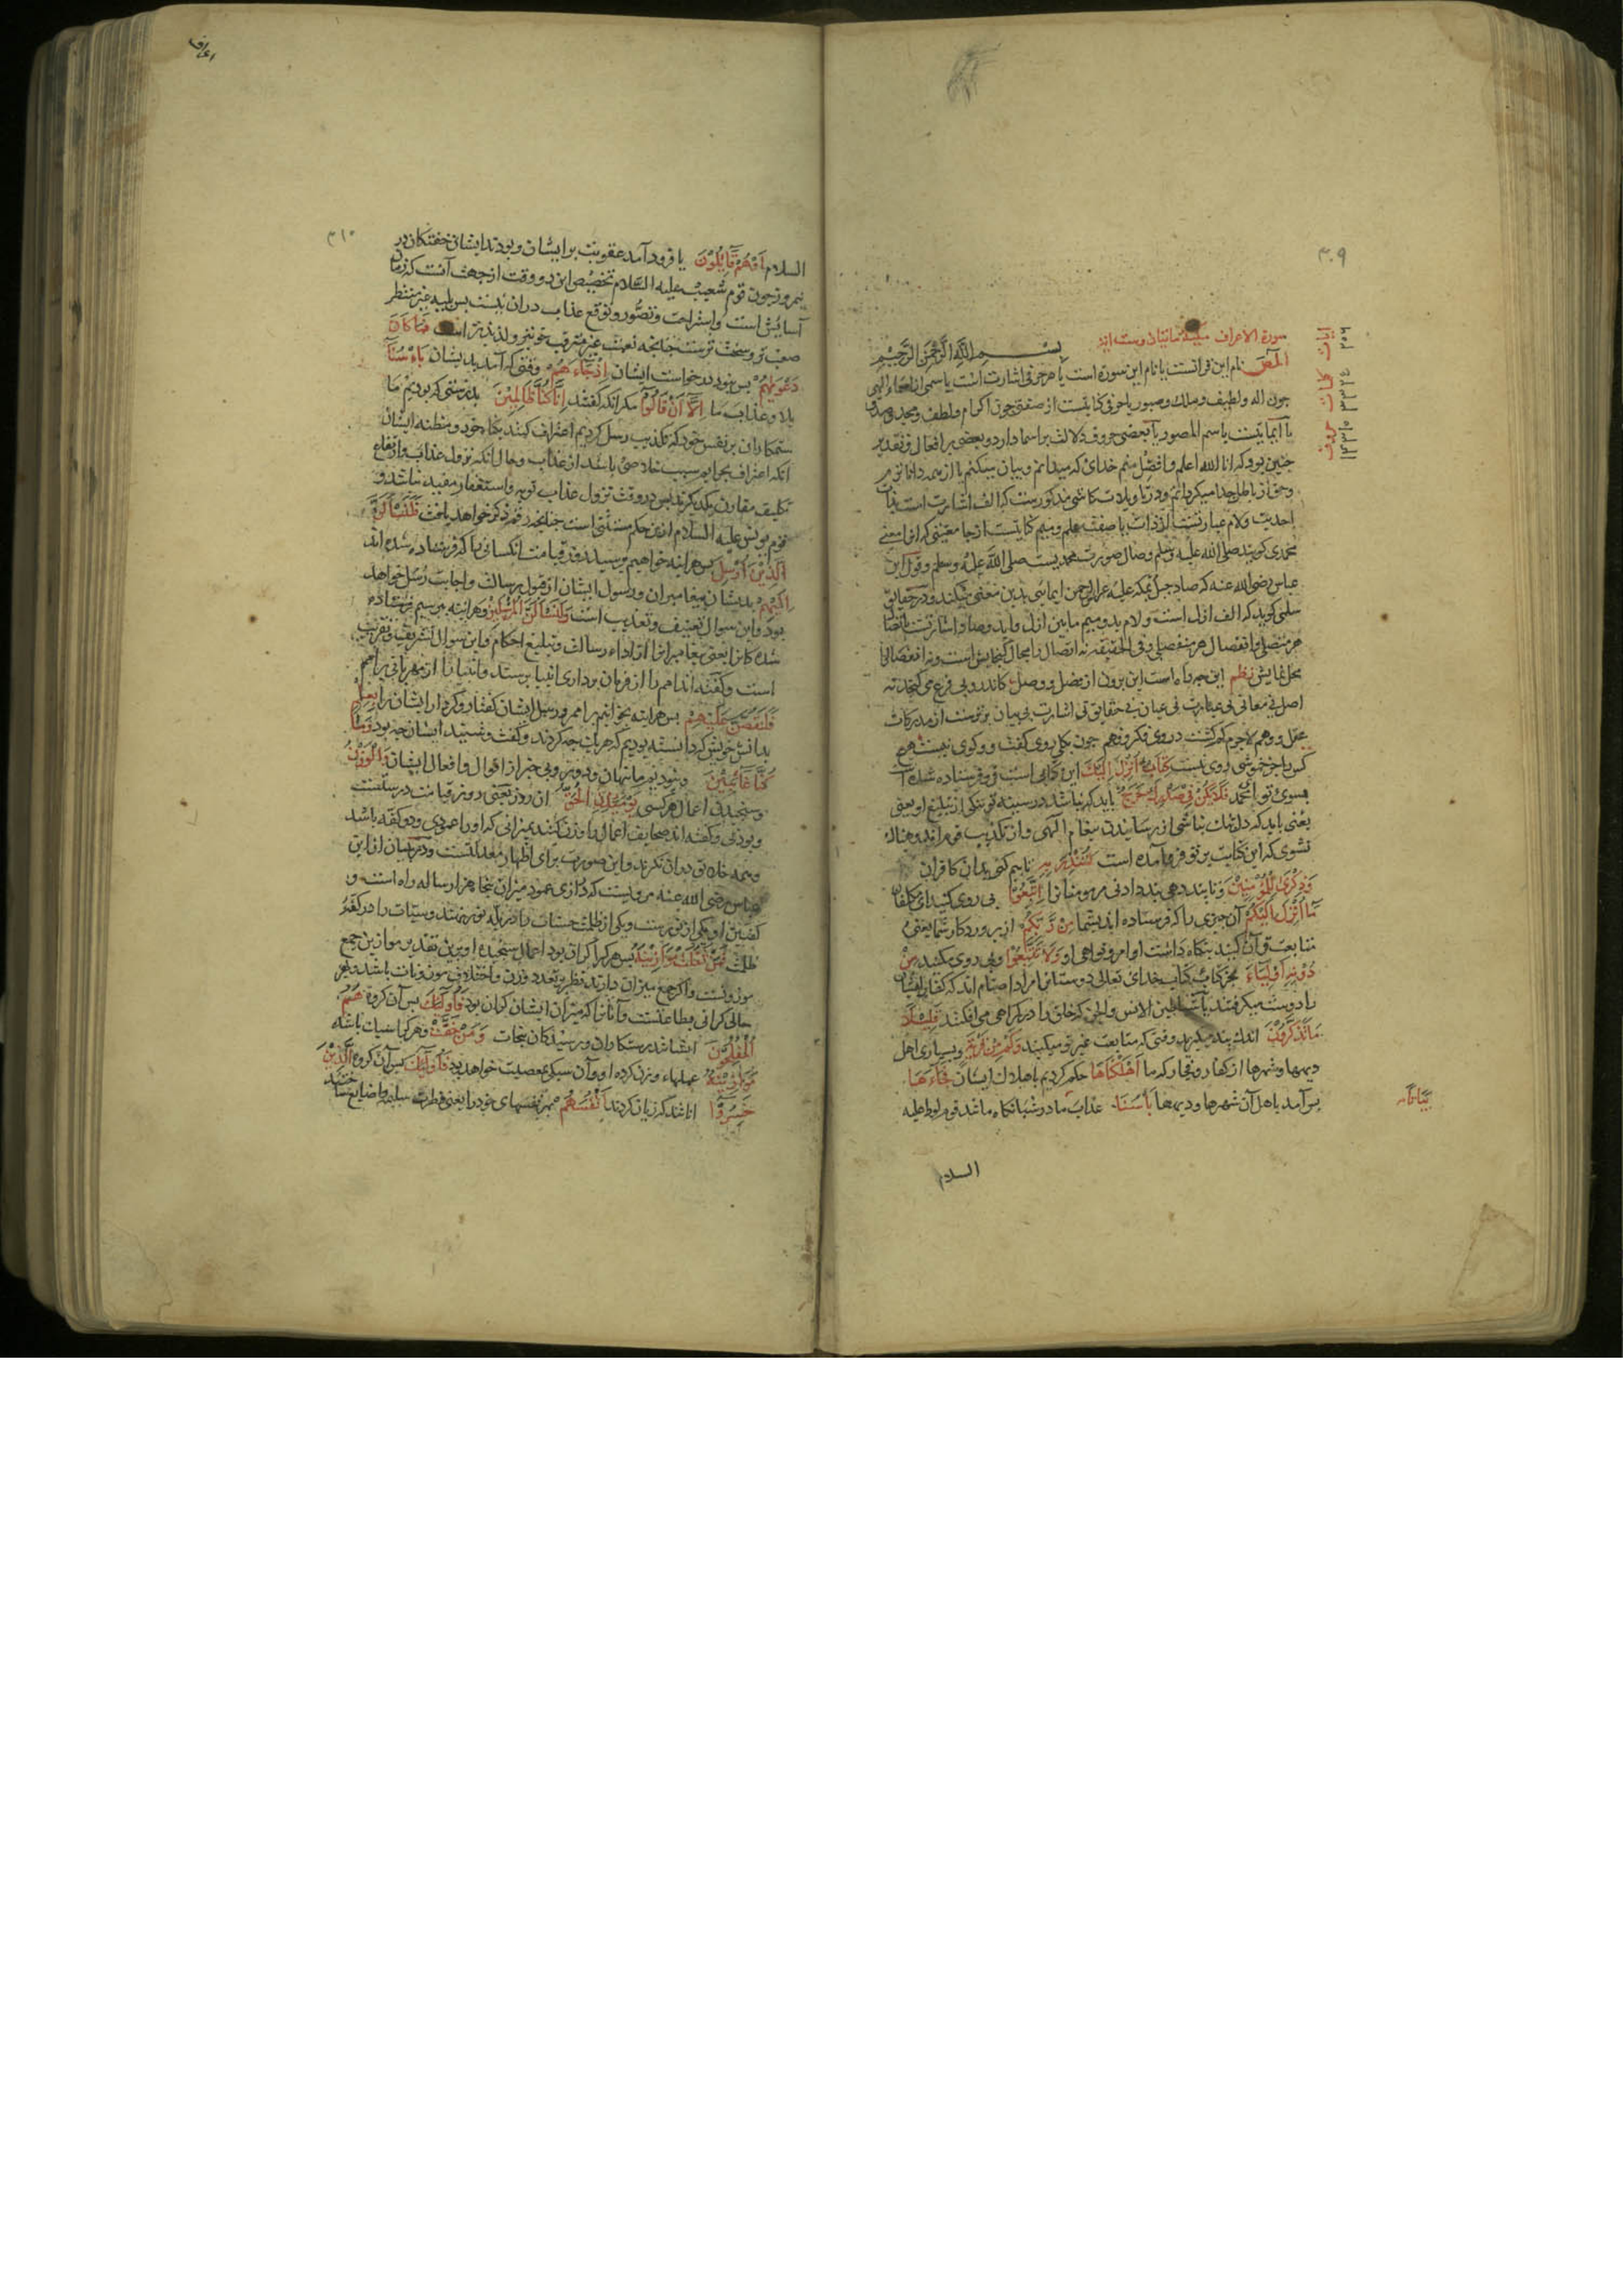 ۳۰۹
سورة الاعراف مکیة مائتان وست ایة
بسم الله الرحمن الرحیم
المص نام این قرانست یا نام این سوره است یا هر حرفی اشارت است باسمی از اسماء الهی
جون اله ولطیف وملک وصبور یا حرفی کنایتست از صفتی جون اکرام ولطف ومجد وصدق
باسم المصور یا بعضی حروف دلالت بر اسما دارد وبعضی بر افعال وتقدیر
جنین بود که انا الله اعلم وافضل منم خدای که میدانم وبیان میکنم یا از همه داناترم
وحق از باطل جدا میکردانم ودر تاویلات کاشی مذکورست که الف اشارت است بذات
احدیت ولام عبارتست از ذات با صفت علم ومیم کنایتست از جامعیتی که انرا معنی
محمدی کویند صلی الله علیه وسلم وصاد صورت محمدیست صلی الله علیه وسلم وقول ابن
عباس رضی الله عنه که صاد جبل بمکة علیه عرش الرحمن ایمائی بدین معنی میکند ودر حقایق
سلمی کوید که الف ازل است ولام ابد ومیم ما بین ازل وابد وصاد اشارتست باتصال
هر متصلی وانفصال هر منفصلی وفی الحقیقة نه اتصال را مجال کنجایش است ونه انفصال را
محل نمایش نظم این جه راه است این برون از فصل ووصل کاندرو نی فرع می کنجد نه
اصل نی معانی نی عبارت نی عیان نی حقایق نی اشارت نی بیان برترست از مدرکات
عقل ووهم لاجرم کم کشت در وی فکر وفهم جون بکلی روی کفت وکوی نیست هیچ
کس را جز خموشی روی نیست کتاب انزل الیک این کتابی است فرو فرستاده شده است
بسوی تو ای محمد فلا یکن فی صدرک حرج باید که نباشد در سینه تو تنکی از تبلیغ او یعنی
یعنی باید که دلتنک نباشی از رسانیدن پیغام الهی واز تکذیب قوم
نشوی که این کتابیست بر تو فرود آمده است لتنذر به تا بیم کنی بدان کافران
وذکری للمؤمنین وتا پند دهی پند دادنی مر مومنان را اتبعوا پی روی کنید ای مکلفان
ما انزل الیکم آن جیزی را که فرستاده اند بشما من ربکم از پروردکار شما یعنی
متابعت قرآن کنید بنکاه داشت اوامر ونواهی او ولا تتبعوا وپی روی مکنید من
دونه اولیاء بجز کتاب خدای تعالی دوستانی را مراد اصنام اند که کفار ایشان
را دوست میکرفتند یا شیاطین الانس والجن که خلق را در کمراهی می افکنند قلیلا
ما تذکرون اندک پند میکیرید وقتی که متابعت غیر تو میکنند وکم من قریة وبسیاری اهل
دیهها وشهرها از کفار وفجار که ما اهلکناها حکم کردیم باهلاک ایشان فجاءها
پس آمد باهل آن شهرها ودیهها باسنا عذاب ما در شبانکاه مانند قوم لوط علیه
بیاتا
السلام
ایات ۲۰۶
کلمات
حروف
اعراف
۳۱۰
السلام او هم قائلون یا فرود آمد عقوبت بر ایشان وبودند ایشان خفتکان در
نیمروز جون قوم شعیب علیه السلام تخصیص این دو وقت از جهت آنست که زمان
آسایش است واستراحت وتصور وتوقع عذاب دران نیست پس بلیه غیر منتظر
صعب تر وسخت ترست جنانجه نعمت غیر مترقب خوبتر ولذیذتر است فما کان
دعویهم پس نبود درخواست ایشان اذ جاءهم وقتی که آمد بدیشان باسنا
بلا وعذاب ما الا ان قالوا مکر آنکه کفتند انا کنا ظالمین بدرستی که بودیم ما
ستمکاران بر نفس خود که تکذیب رسل کردیم اعتراف کنند بکناه خود ومظنه ایشان
آنکه اعتراف بجرایم سبب خلاصی باشد از عذاب وحال آنکه نزول عذاب وارتفاع
تکلیف مقارن یکدیکرند پس در وقت نزول عذاب توبه واستغفار مفید نباشد و
قوم یونس علیه السلام ازین حکم مستثنی است جنانجه رقم ذکر خواهد یافت فلنسألن
الذین ارسل پس هراینه خواهیم پرسید در قیامت آنکسانی را که فرستاده شده اند
الیهم بدیشان پیغامبران ورسول ایشان از قبول رسالت واجابت رسل خواهد
بود واین سوال تعنیف وتعذیب است ولنسألن المرسلین وهراینه بپرسیم فرستاده
شده کانرا یعنی پیغامبران را از اداء رسالت وتبلیغ احکام واین سوال تشریف وتقریب
است وکفته اند امم را از فرمان برداری انبیا پرسند وانبیا را از مهربانی بر امم
فلنقصن علیهم پس هراینه بخوانیم بر امم ورسل ایشان کفتار وکردار ایشان را بعلم
بدانش خویش که دانسته بودیم که هریک جه کردند وکفت وشنید ایشان جه بود وما
کنا غائبین ونبودیم ما پنهان ودور وبی خبر از اقوال وافعال ایشان والوزن
وسنجیدن اعمال هر کسی یومئذ الحق آن روز یعنی روز قیامت درستست
وبودنی وکفته اند صحایف اعمال را وزن کنند بمیزانی که او را عمودی ودو کفه باشد
وهمه خلائق دران نکرند واین صورت برای اظهار معدلتست ودر تبیان از ابن
عباس رضی الله عنه مرویست که درازی عمود میزان پنجاه هزار ساله راه است و
کفتین او یکی از نورست ویکی از ظلمت حسنات را در پله نور نهند وسیئات را در کفه
ظلمت فمن ثقلت موازینه پس هر کرا کران بود اعمال سنجیده او برین تقدیر موازین جمع
موزونست واکر جمع میزان دارند نظر بتعدد وزن واختلاف موزونات باشد وبهر
حالی کرانی بطاعتست وآنانرا که میزان ایشان کران بود فاولئک پس آن کروه هم
المفلحون ایشانند رستکاران ورسیدکان بنجات ومن خفت وهر کرا سبک باشد
موازینه عملهاء وزن کرده او وآن سبکی بمعصیت خواهد بود فاولئک پس آن کروه الذین
خسروا انانند که زیان کردند انفسهم بر نفسهای خود را یعنی فطرت سلیمه را ضایع ساختند